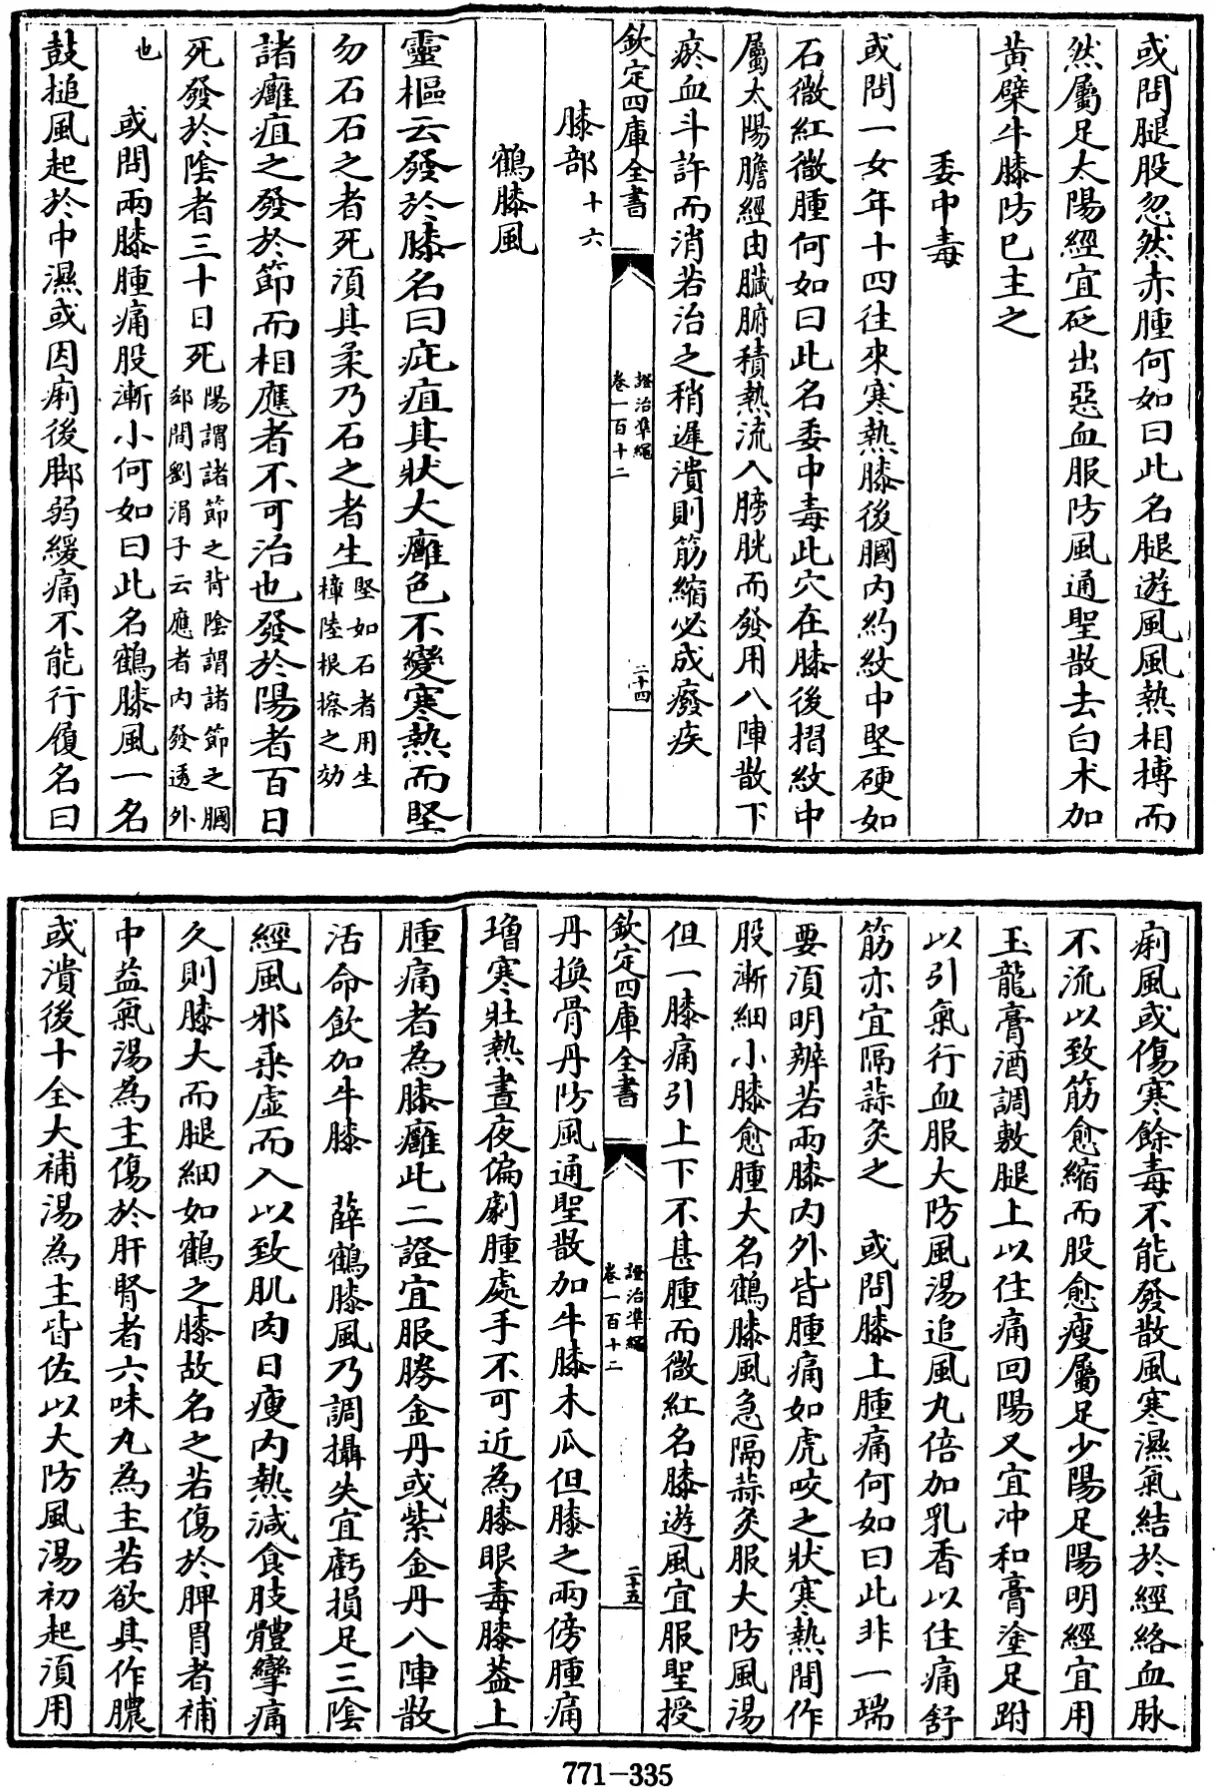 或問腿股忽然赤腫何如曰此名腿遊風風熱相搏而
然屬足太陽經宜砭出惡血服防風通聖散去白术加
黄檗牛膝防已主之
委中毒
或問一女年十四往來寒熱膝後膕内約紋中堅硬如
石微紅微腫何如曰此名委中毒此穴在膝後摺紋中
屬太陽膽經由臟腑積熱流入膀胱而發用八陣散下
瘀血斗許而消若治之稍遲潰則筋縮必成廢疾
欽定四庫全書
證治凖繩
卷一百十二
二十四
膝部十六
鶴膝風
靈樞云發於膝名曰疵疽其狀大癰色不變寒熱而堅
勿石石之者死須其柔乃石之者生堅如石者用生
樟陸根擦之効
諸癰疽之發於節而相應者不可治也發於陽者百日
死發於陰者三十日死陽謂諸節之背陰謂諸節之膕
郄間劉涓子云應者内發透外
也　或問兩膝腫痛股漸小何如曰此名鶴膝風一名
鼓搥風起於中濕或因痢後脚弱緩痛不能行履名曰
痢風或傷寒餘毒不能發散風寒濕氣結於經絡血脉
不流以致筋愈縮而股愈瘦屬足少陽足陽明經宜用
玉龍膏酒調敷腿上以住痛回陽又宜冲和膏塗足跗
以引氣行血服大防風湯追風丸倍加乳香以住痛舒
筋亦宜隔蒜灸之　或問膝上腫痛何如曰此非一端
要須明辨若兩膝内外皆腫痛如虎咬之狀寒熱間作
股漸細小膝愈腫大名鶴膝風急隔蒜灸服大防風湯
但一膝痛引上下不甚腫而微紅名膝遊風宜服聖授
欽定四庫全書
證治凖繩
卷一百十二
二十五
丹換骨丹防風通聖散加牛膝木瓜但膝之兩傍腫痛
增寒壯熱晝夜偏劇腫處手不可近為膝眼毒膝葢上
腫痛者為膝癰此二證宜服勝金丹或紫金丹八陣散
活命飲加牛膝　薛鶴膝風乃調攝失宜虧損足三陰
經風邪乘虛而入以致肌肉日瘦内熱減食肢體攣痛
久則膝大而腿細如鶴之膝故名之若傷於脾胃者補
中益氣湯為主傷於肝腎者六味丸為主若欲其作膿
或潰後十全大補湯為主皆佐以大防風湯初起須用
771-335